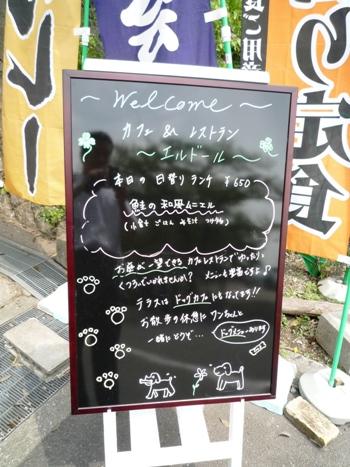 ~ Welcome ~
カフェ & レストラン
~ エルドール ~
本日の 日替り ランチ ¥650
鮭の和風ムニエル
(小鉢 ごはん みそ汁 つけもの)
お庭が一望できる カフェレストランで ゆったり
くつろいでいきませんか? メニューも豊富ですよ♪
テラスは ドッグカフェにもなってます!!
お散歩の休憩に ワンちゃんと
一緒にどうぞ…
ドッグメニューあります
ご用意
り定食